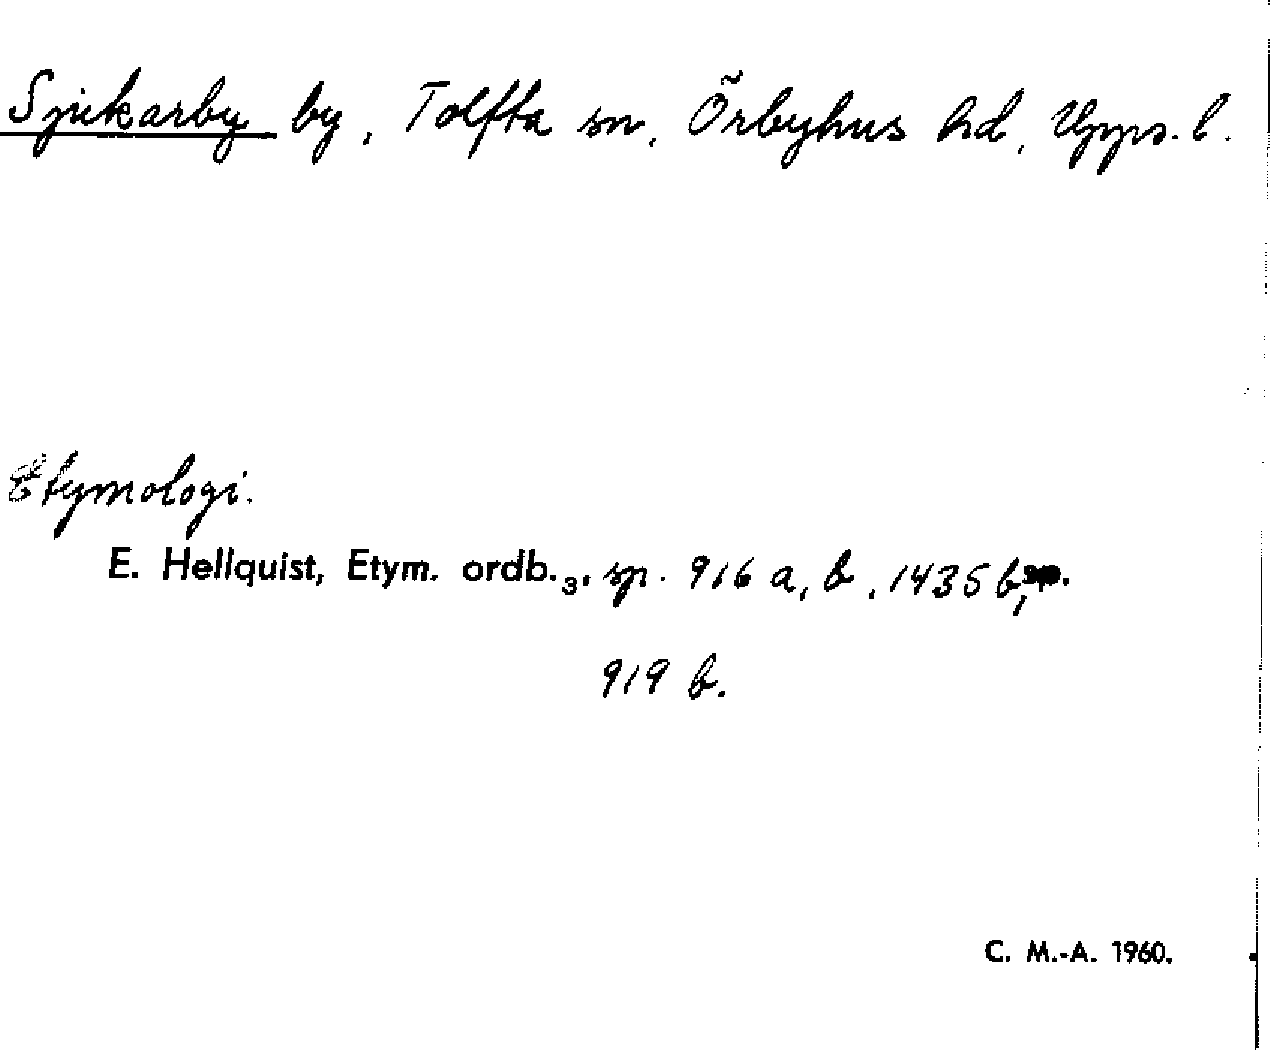 Sjukarby by, Tolfta sn, Örbyhus hd, Upps. l.
Etymologi.
E. Hellquist, Etym. ordb.₃, sp. 916 a, b, 1435 b,
919 b.
C. M.-A. 1960.